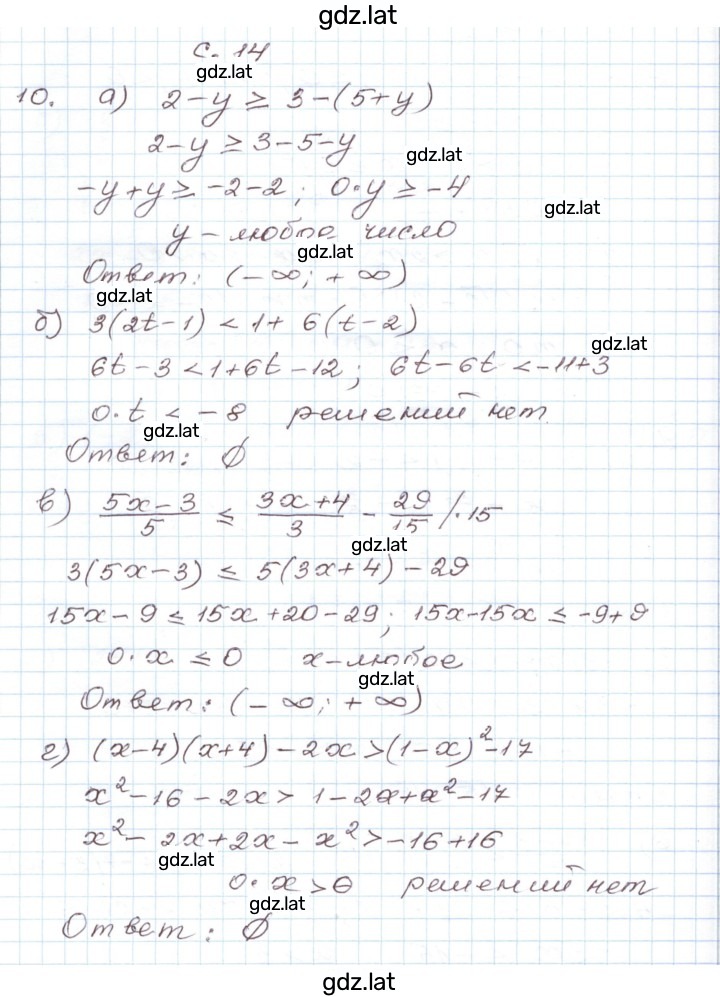 gdz.lat
с. 14
gdz.lat
10. а) 2-y ≥ 3-(5+y)
2-y ≥ 3-5-y
gdz.lat
-y+y ≥ -2-2; 0·y ≥ -4
gdz.lat
y - любое число
gdz.lat
Ответ: (-∞; +∞)
gdz.lat
б) 3(2t-1) < 1+ 6(t-2)
gdz.lat
6t-3 < 1+6t-12; 6t-6t < -11+3
0·t < -8 решений нет
gdz.lat
Ответ: ∅
в) (5x-3)/5 ≤ (3x+4)/3 - 29/15 /·15
gdz.lat
3(5x-3) ≤ 5(3x+4)-29
15x-9 ≤ 15x+20-29; 15x-15x ≤ -9+9
0·x ≤ 0 x-любое
gdz.lat
Ответ: (-∞; +∞)
г) (x-4)(x+4)-2x > (1-x)²-17
x²-16-2x > 1-2x+x²-17
x²-2x+2x-x² > -16+16
gdz.lat
0·x > 0 решений нет
gdz.lat
Ответ: ∅
gdz.lat